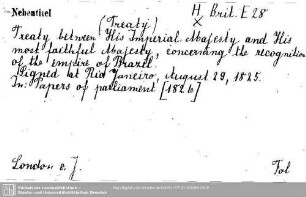 Nebentitel
H. Brit. E 28
X
(Treaty)
Treaty between His Imperial Majesty and His
most faithful Majesty, concerning the recognition
of the empire of Brazil
Signed at Rio Janeiro, August 29, 1825.
In: Papers of parliament [1826]
London o. J.
Fol